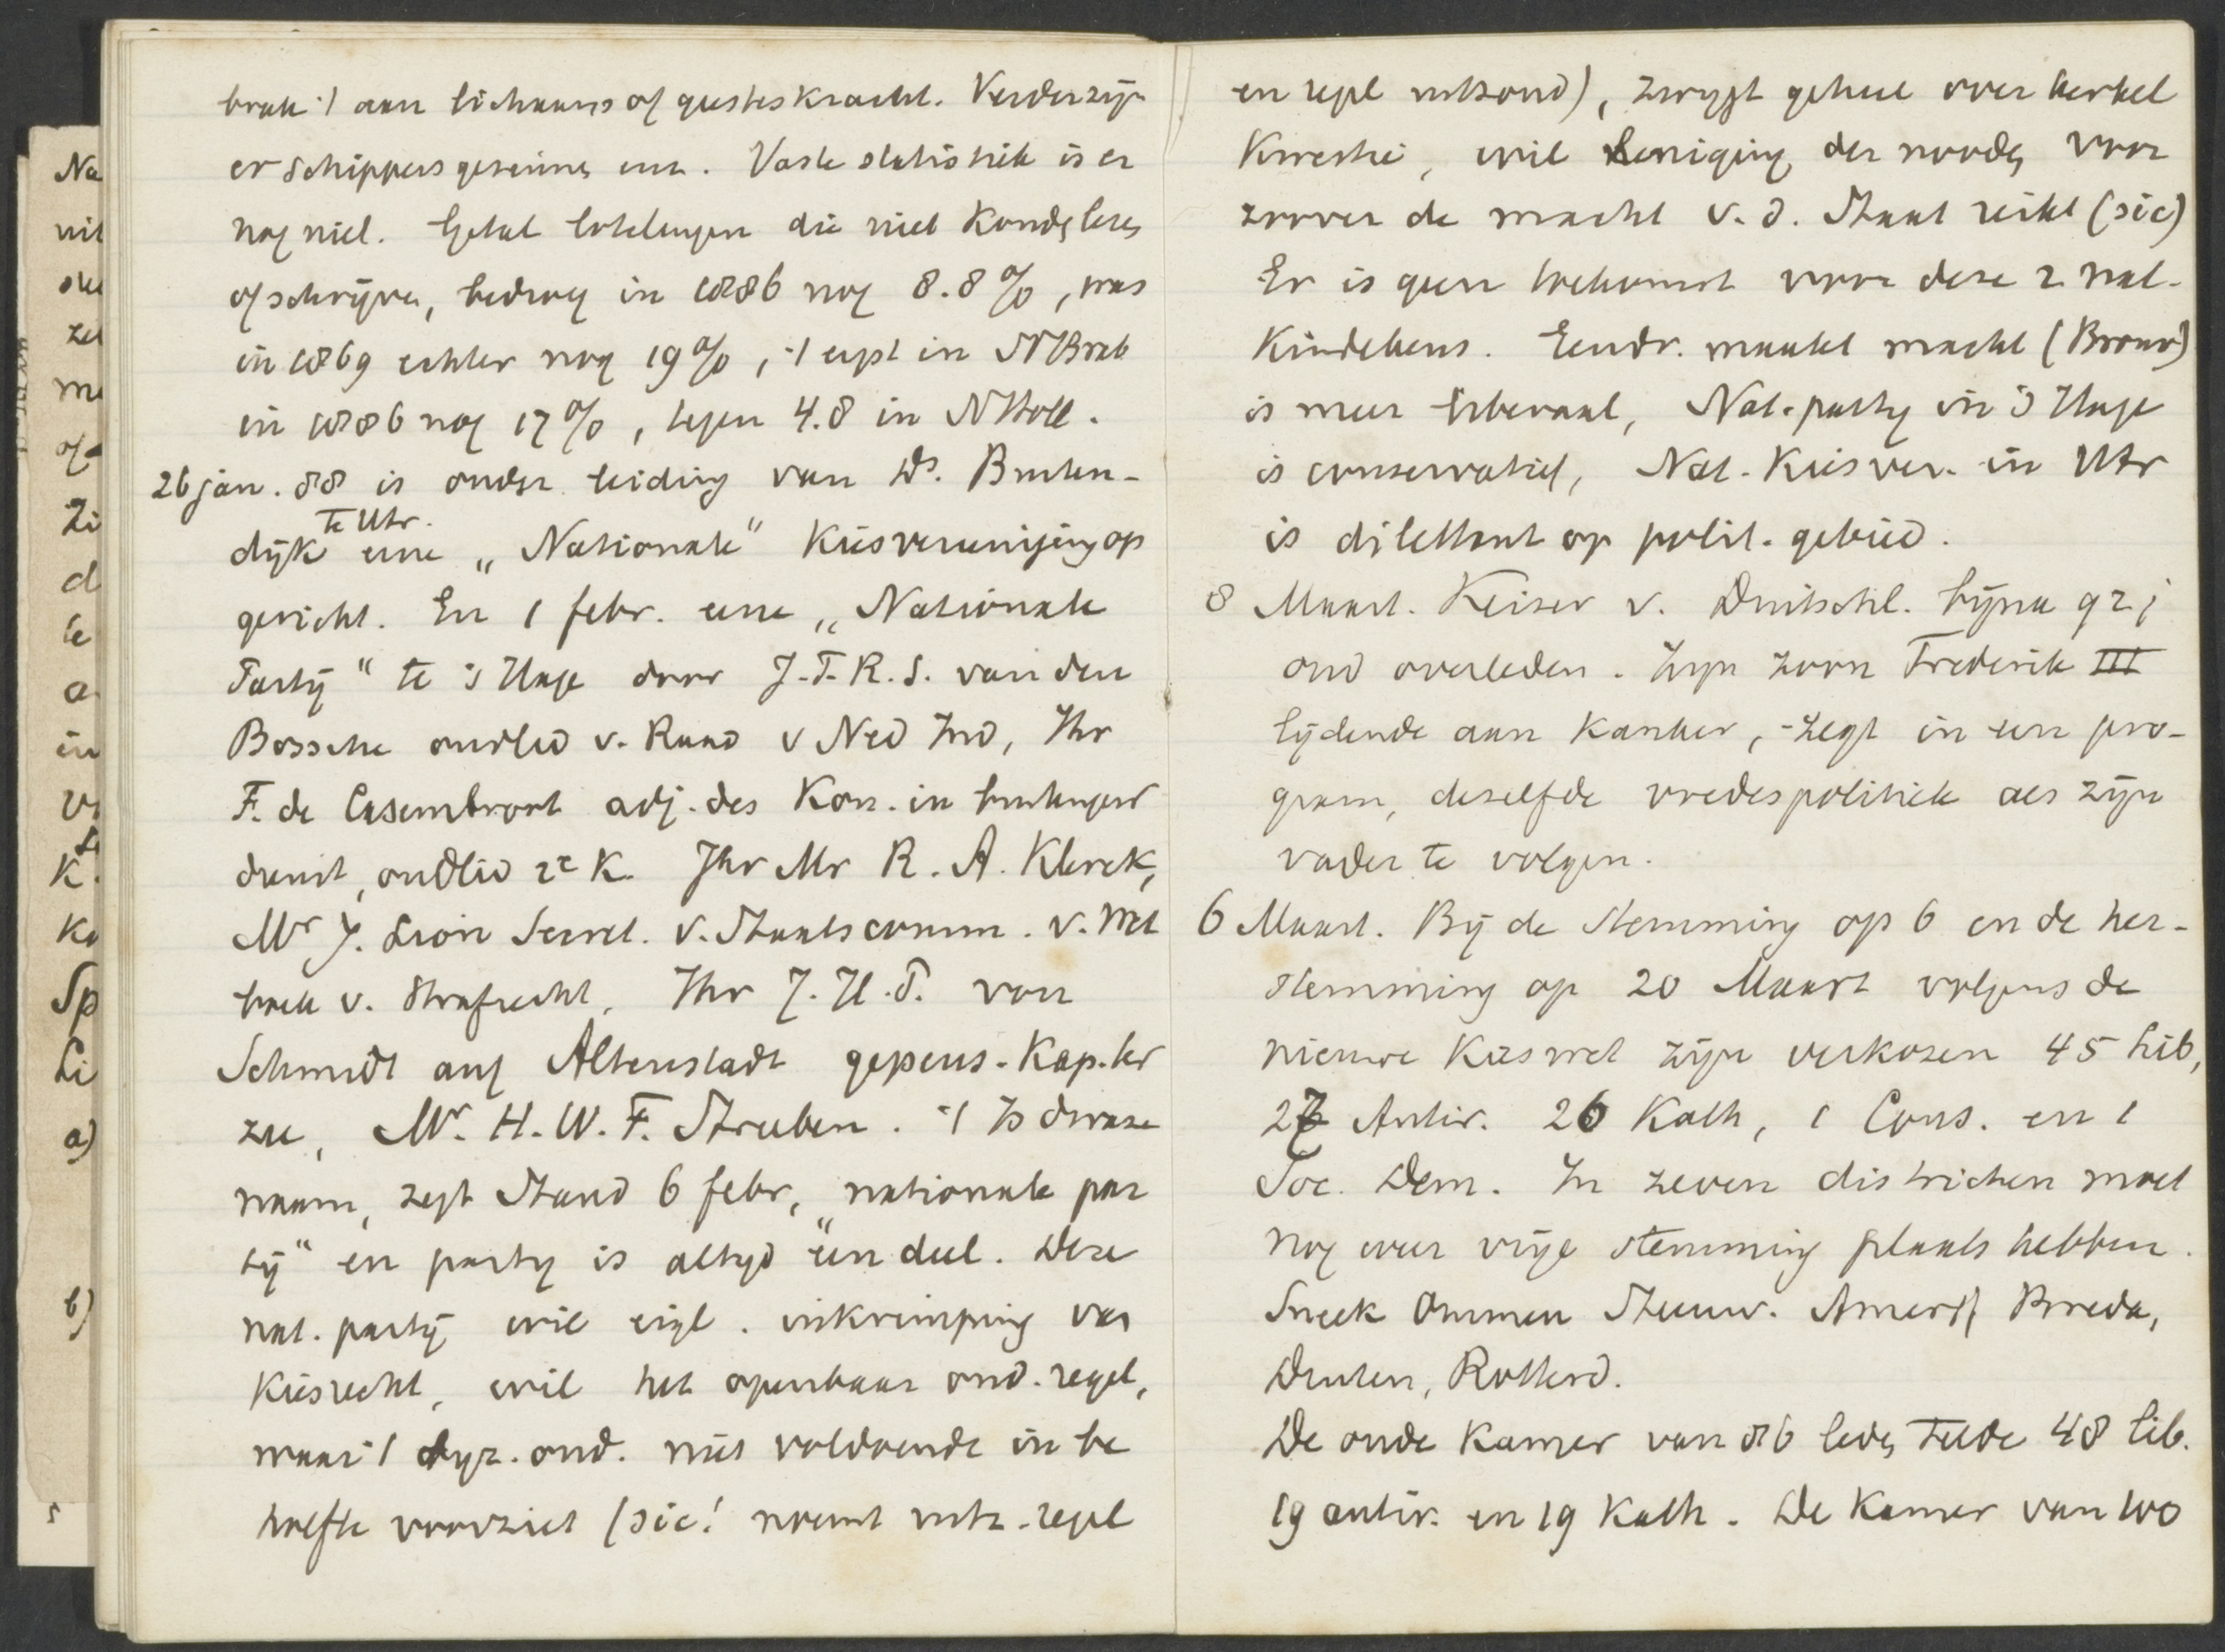 brek 't aan lichaams of geesteskracht. Verder zijn
er schippersgezinnen enz. Vaste statistiek is er
nog niet. Getal lotelingen die niet konden lezen
of schrijven, bedroeg in 1886 nog 8.8%, was
in 1869 echter nog 19%, 't ergst in NBrab
in 1886 nog 17%, tegen 4.8 in NHoll.
26 jan. 88 is onder leiding van Ds. Buiten-
dijk te Utr. eene „Nationale" Kiesvereeniging op
gericht. En 1 febr. eene „Nationale
Partij" te 's Hage door J.P.R.S. van den
Bossche oudlid v. Raad v Ned Ind, Jhr
F. de Casembroot adj. des Kon. in buitengew
dienst, oudlid 2e K. Jhr Mr R. A. Klerck,
Mr J. Lion Secret. v. Staatscomm. v. Wet
boek v. Strafrecht, Jhr J. H. P. von
Schmidt auf Altenstadt gepens. Kap. ter
zee, Mr. H. W. F. Struben. 't Is dwaze
naam, zegt Stand 6 febr, „nationale par
tij" en partij is altijd een deel. Deze
nat. partij wil eigl. inkrimping van
Kiesrecht, wil het openbaar ond. regel,
waar 't byz. ond. niet voldoende in be
hoefte voorziet (sic! noemt uitz. regel
en regel uitzond), zwijgt geheel over kerkel
Kwestie, wil leniging der nooden voor
zoover de macht v. d. Staat reikt (sic)
Er is geen toekomst voor deze 2 nat.
Kindekens. Eendr. maakt macht (Brouw)
is meer liberaal, Nat. partij in 's Hage
is conservatief, Nat. Kiesver. in Utr
is dilettant op polit. gebied.
8 Maart. Keizer v. Duitschl. bijna 92 j
oud overleden. Zijn zoon Frederik III
lijdende aan kanker, zegt in een pro-
gram, dezelfde vredespolitiek als zijn
vader te volgen.
6 Maart. Bij de Stemming op 6 en de her-
stemming op 20 Maart volgens de
nieuwe Kieswet zijn verkozen 45 lib,
27 Antir. 26 Kath, 1 Cons. en 1
Soc. Dem. In zeven districten moet
nog weer vrije stemming plaats hebben.
Sneek Ommen Steenw. Amersf Breda,
Druten, Rotterd.
De oude Kamer van 86 leden telde 48 lib.
19 antir. en 19 Kath. De Kamer van 100